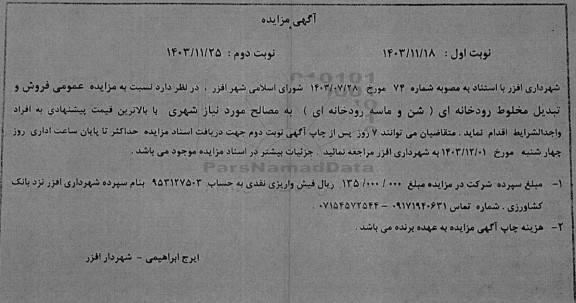 آگهی مزایده
نوبت اول : ۱۴۰۳/۱۱/۱۸ نوبت دوم : ۱۴۰۳/۱۱/۲۵
شهرداری افزر با استناد به مصوبه شماره ۷۴ مورخ ۱۴۰۳/۰۷/۲۸ شورای اسلامی شهر افزر ، در نظر دارد نسبت به مزایده عمومی فروش و
تبدیل مخلوط رودخانه ای ( شن و ماسه رودخانه ای ) به مصالح مورد نیاز شهری با بالاترین قیمت پیشنهادی به افراد
واجدالشرایط اقدام نماید . متقاضیان می توانند ۷ روز پس از چاپ آگهی نوبت دوم جهت دریافت اسناد مزایده حداکثر تا پایان ساعت اداری روز
چهار شنبه مورخ ۱۴۰۳/۱۲/۰۱ به شهرداری افزر مراجعه نمائید . جزئیات بیشتر در اسناد مزایده موجود می باشد .
ParsNamadData
۱- مبلغ سپرده شرکت در مزایده مبلغ ۱۳۵/۰۰۰/۰۰۰ ریال فیش واریزی نقدی به حساب ۹۵۳۱۲۷۵۰۳ بنام سپرده شهرداری افزر نزد بانک
کشاورزی . شماره تماس ۰۹۱۷۱۹۴۰۶۳۱ – ۰۷۱۵۴۵۷۲۵۴۴ .
۲- هزینه چاپ آگهی مزایده به عهده برنده می باشد .
ایرج ابراهیمی - شهردار افزر